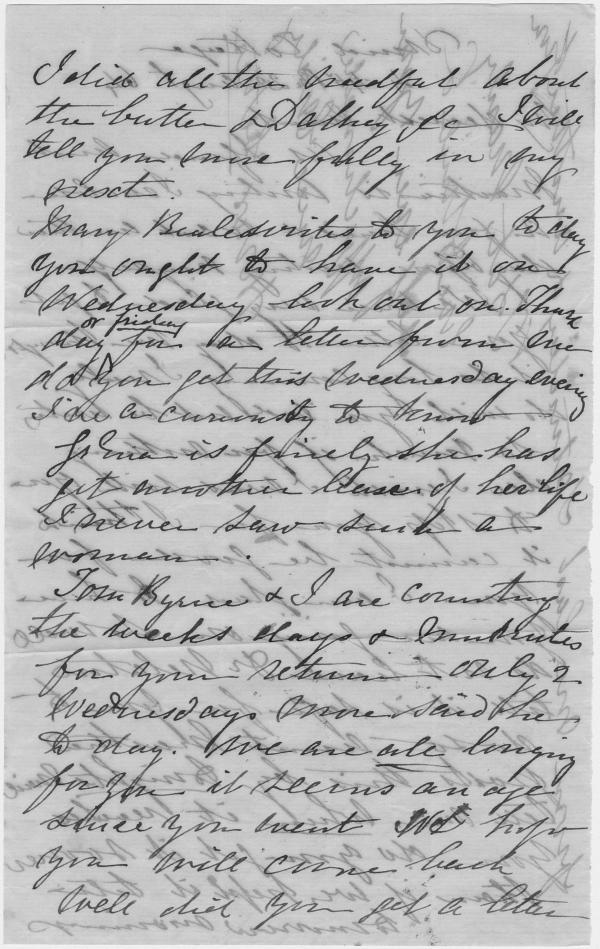 I did all the needful about
the butter & Dalkey &c I will
tell you more fully in my
next.
Mary Beale writes to you to day
you ought to have it on
Wednesday look out on Thurs
or friday
day for a letter from me
did you get this Wednesday evening
I've a curiosity to know
is finely she has
got another lease of her life
I never saw such a
woman.
Tom Byrne & I are counting
the weeks days & minutes
for your return only 2
Wednesdays more said he
to day. We are all longing
for you it seems an age
since you went We hope
you will come back
Well did you get a letter